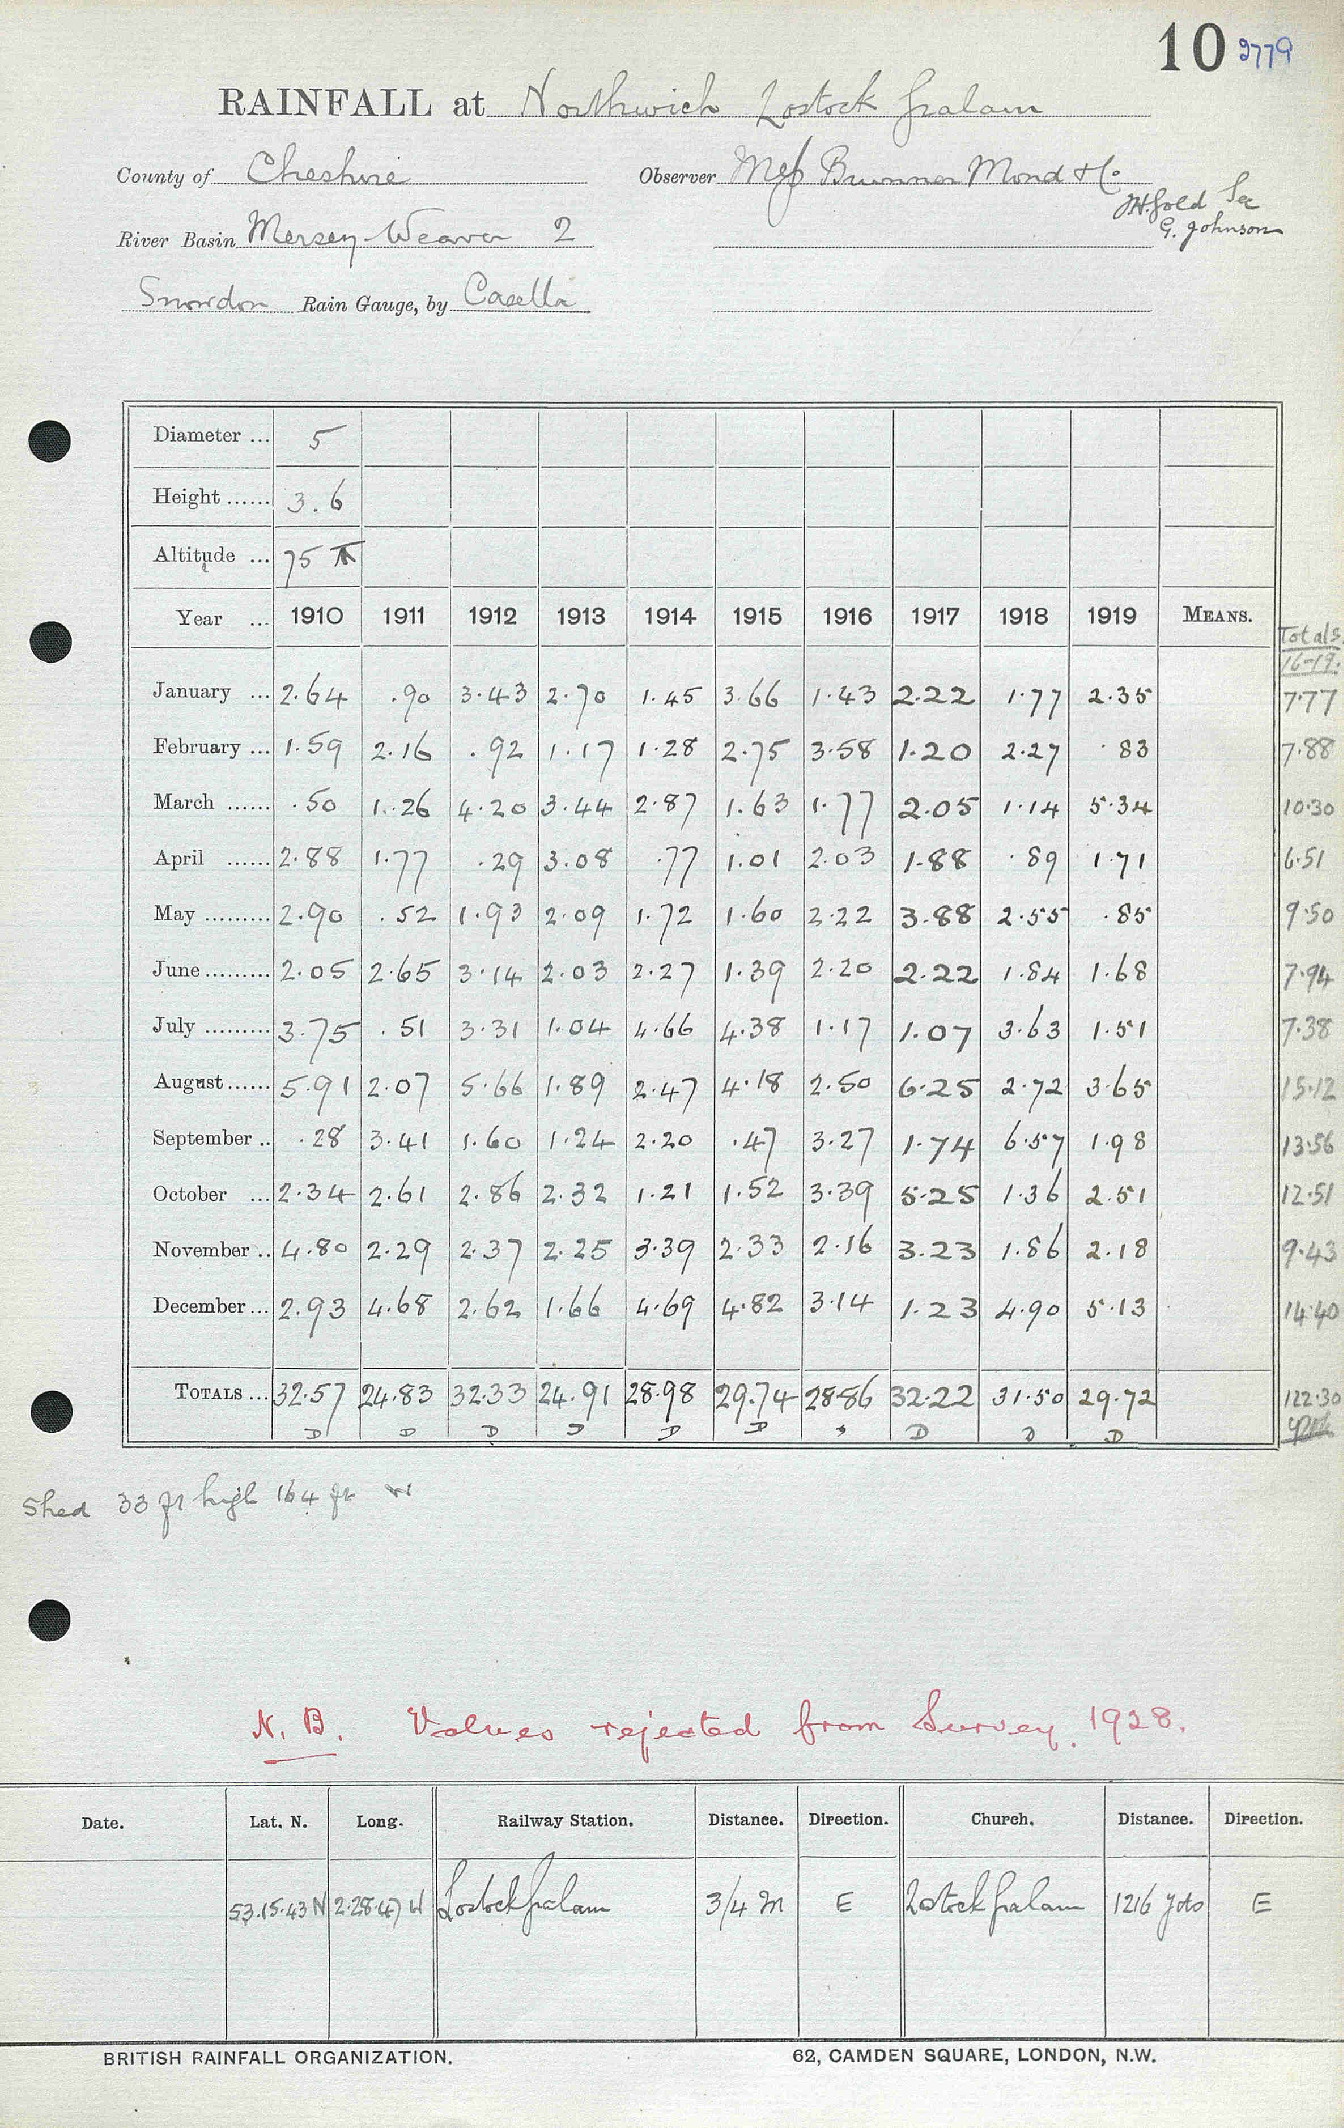 10 9779
RAINFALL at Northwich Lostock Gralam
County of Cheshire Observer Messrs Brunner Mond & Co.
G. Johnson
River Basin Mersey-Weaver 2
Snowdon Rain Gauge, by Casella
Diameter ... 5
Height ...... 3.6
Altitude ... 75
Year ... 1910 1911 1912 1913 1914 1915 1916 1917 1918 1919 MEANS. Totals 16-19.
January ... 2.64 .90 3.43 2.70 1.45 3.66 1.43 2.22 1.77 2.35 7.77
February ... 1.59 2.16 .92 1.17 1.28 2.75 3.58 1.20 2.27 .83 7.88
March ...... .50 1.26 4.20 3.44 2.87 1.63 1.77 2.05 1.14 5.34 10.30
April ...... 2.88 1.77 .29 3.08 .77 1.01 2.03 1.88 .89 1.71 6.51
May ......... 2.90 .52 1.93 2.09 1.72 1.60 2.22 3.88 2.55 .85 9.50
June ......... 2.05 2.65 3.14 2.03 2.27 1.39 2.20 2.22 1.84 1.68 7.94
July ......... 3.75 .51 3.31 1.04 4.66 4.38 1.17 1.07 3.63 1.51 7.38
August ...... 5.91 2.07 5.66 1.89 2.47 4.18 2.50 6.25 2.72 3.65 15.12
September .. .28 3.41 1.60 1.24 2.20 .47 3.27 1.74 6.57 1.98 13.56
October ... 2.34 2.61 2.86 2.32 1.21 1.52 3.39 5.25 1.36 2.51 12.51
November .. 4.80 2.29 2.37 2.25 3.39 2.33 2.16 3.23 1.86 2.18 9.43
December ... 2.93 4.68 2.62 1.66 4.69 4.82 3.14 1.23 4.90 5.13 14.40
TOTALS ... 32.57 24.83 32.33 24.91 28.98 29.74 28.86 32.22 31.50 29.72 122.30
D D D D D D D D D
Shed 33 ft high 164 ft
N.B. Values rejected from Survey. 1928.
Date. Lat. N. Long. Railway Station. Distance. Direction. Church. Distance. Direction.
53.15.43 N 2.28.47 W Lostock Gralam 3/4 m E Lostock Gralam 1216 yds E
BRITISH RAINFALL ORGANIZATION. 62, CAMDEN SQUARE, LONDON, N.W.